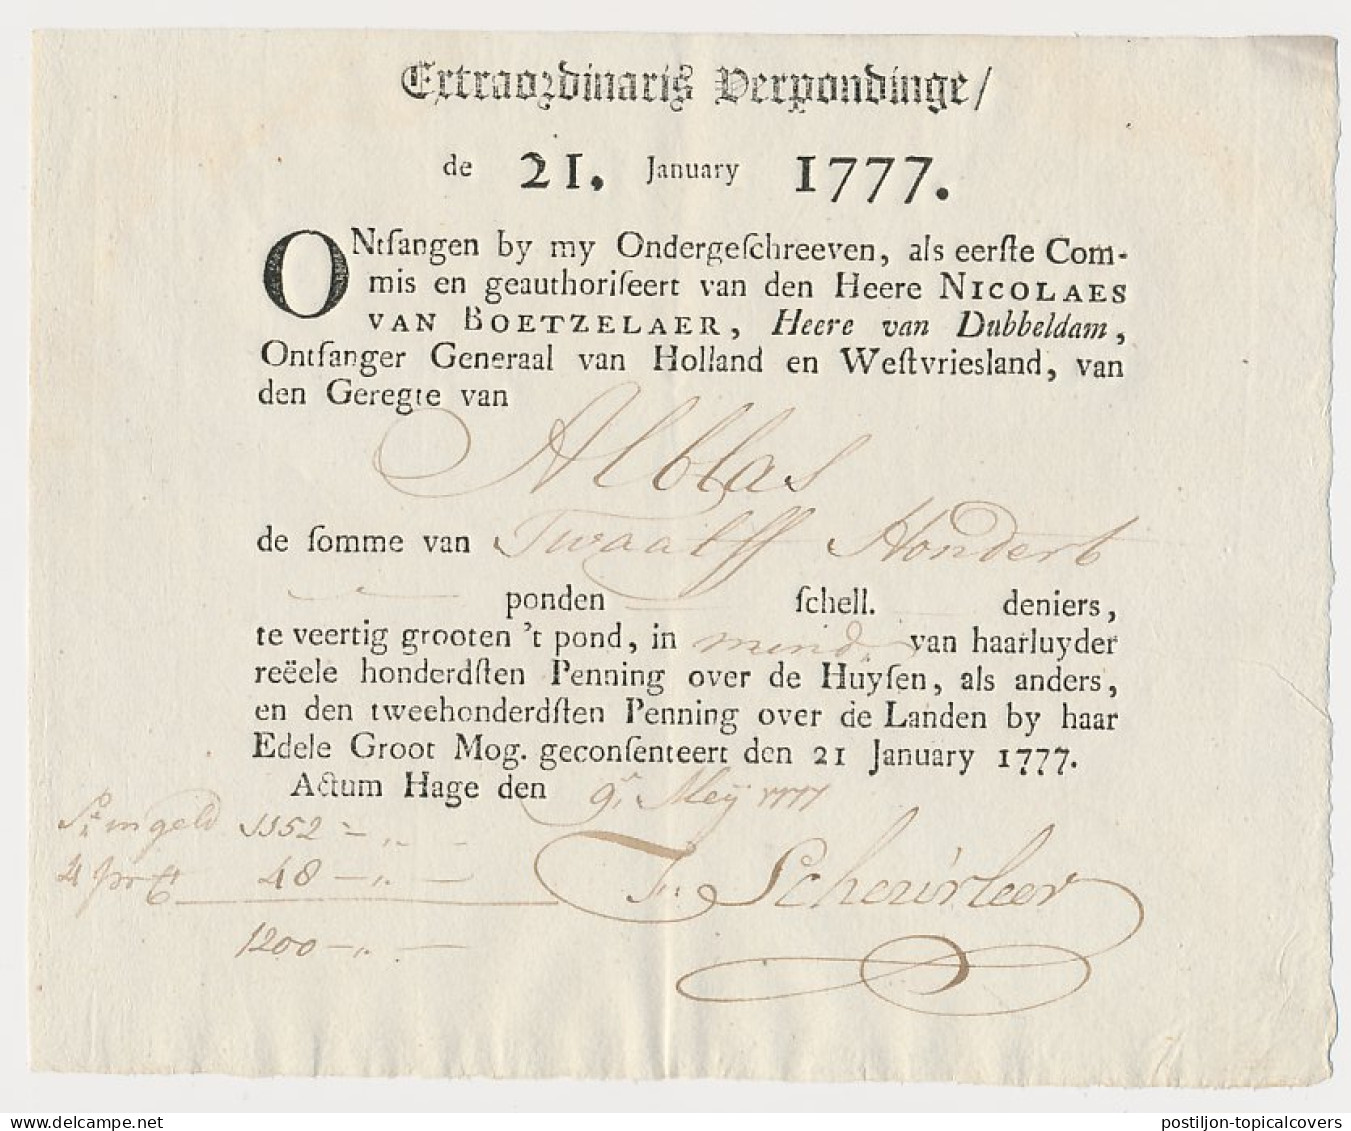 Extraordinaris Verpondinge/
de 21. January 1777.
ONtfangen by my Ondergeſchreeven, als eerſte Com-
mis en geauthoriſeert van den Heere NICOLAES
VAN BOETZELAER, Heere van Dubbeldam,
Ontfanger Generaal van Holland en Weſtvriesland, van
den Geregte van
Alblas
de ſomme van Twaalff Hondert
ponden — ſchell. — deniers,
te veertig grooten 't pond, in mind. van haarluyder
reëele honderdſten Penning over de Huyſen, als anders,
en den tweehonderdſten Penning over de Landen by haar
Edele Groot Mog. geconſenteert den 21 January 1777.
Actum Hage den 9. Meÿ 1777
in geld 1152 -„-
4 pr Ct 48 -„-
1200 -„-
Scheurleer
delcampe.net
postiljon-topicalcovers